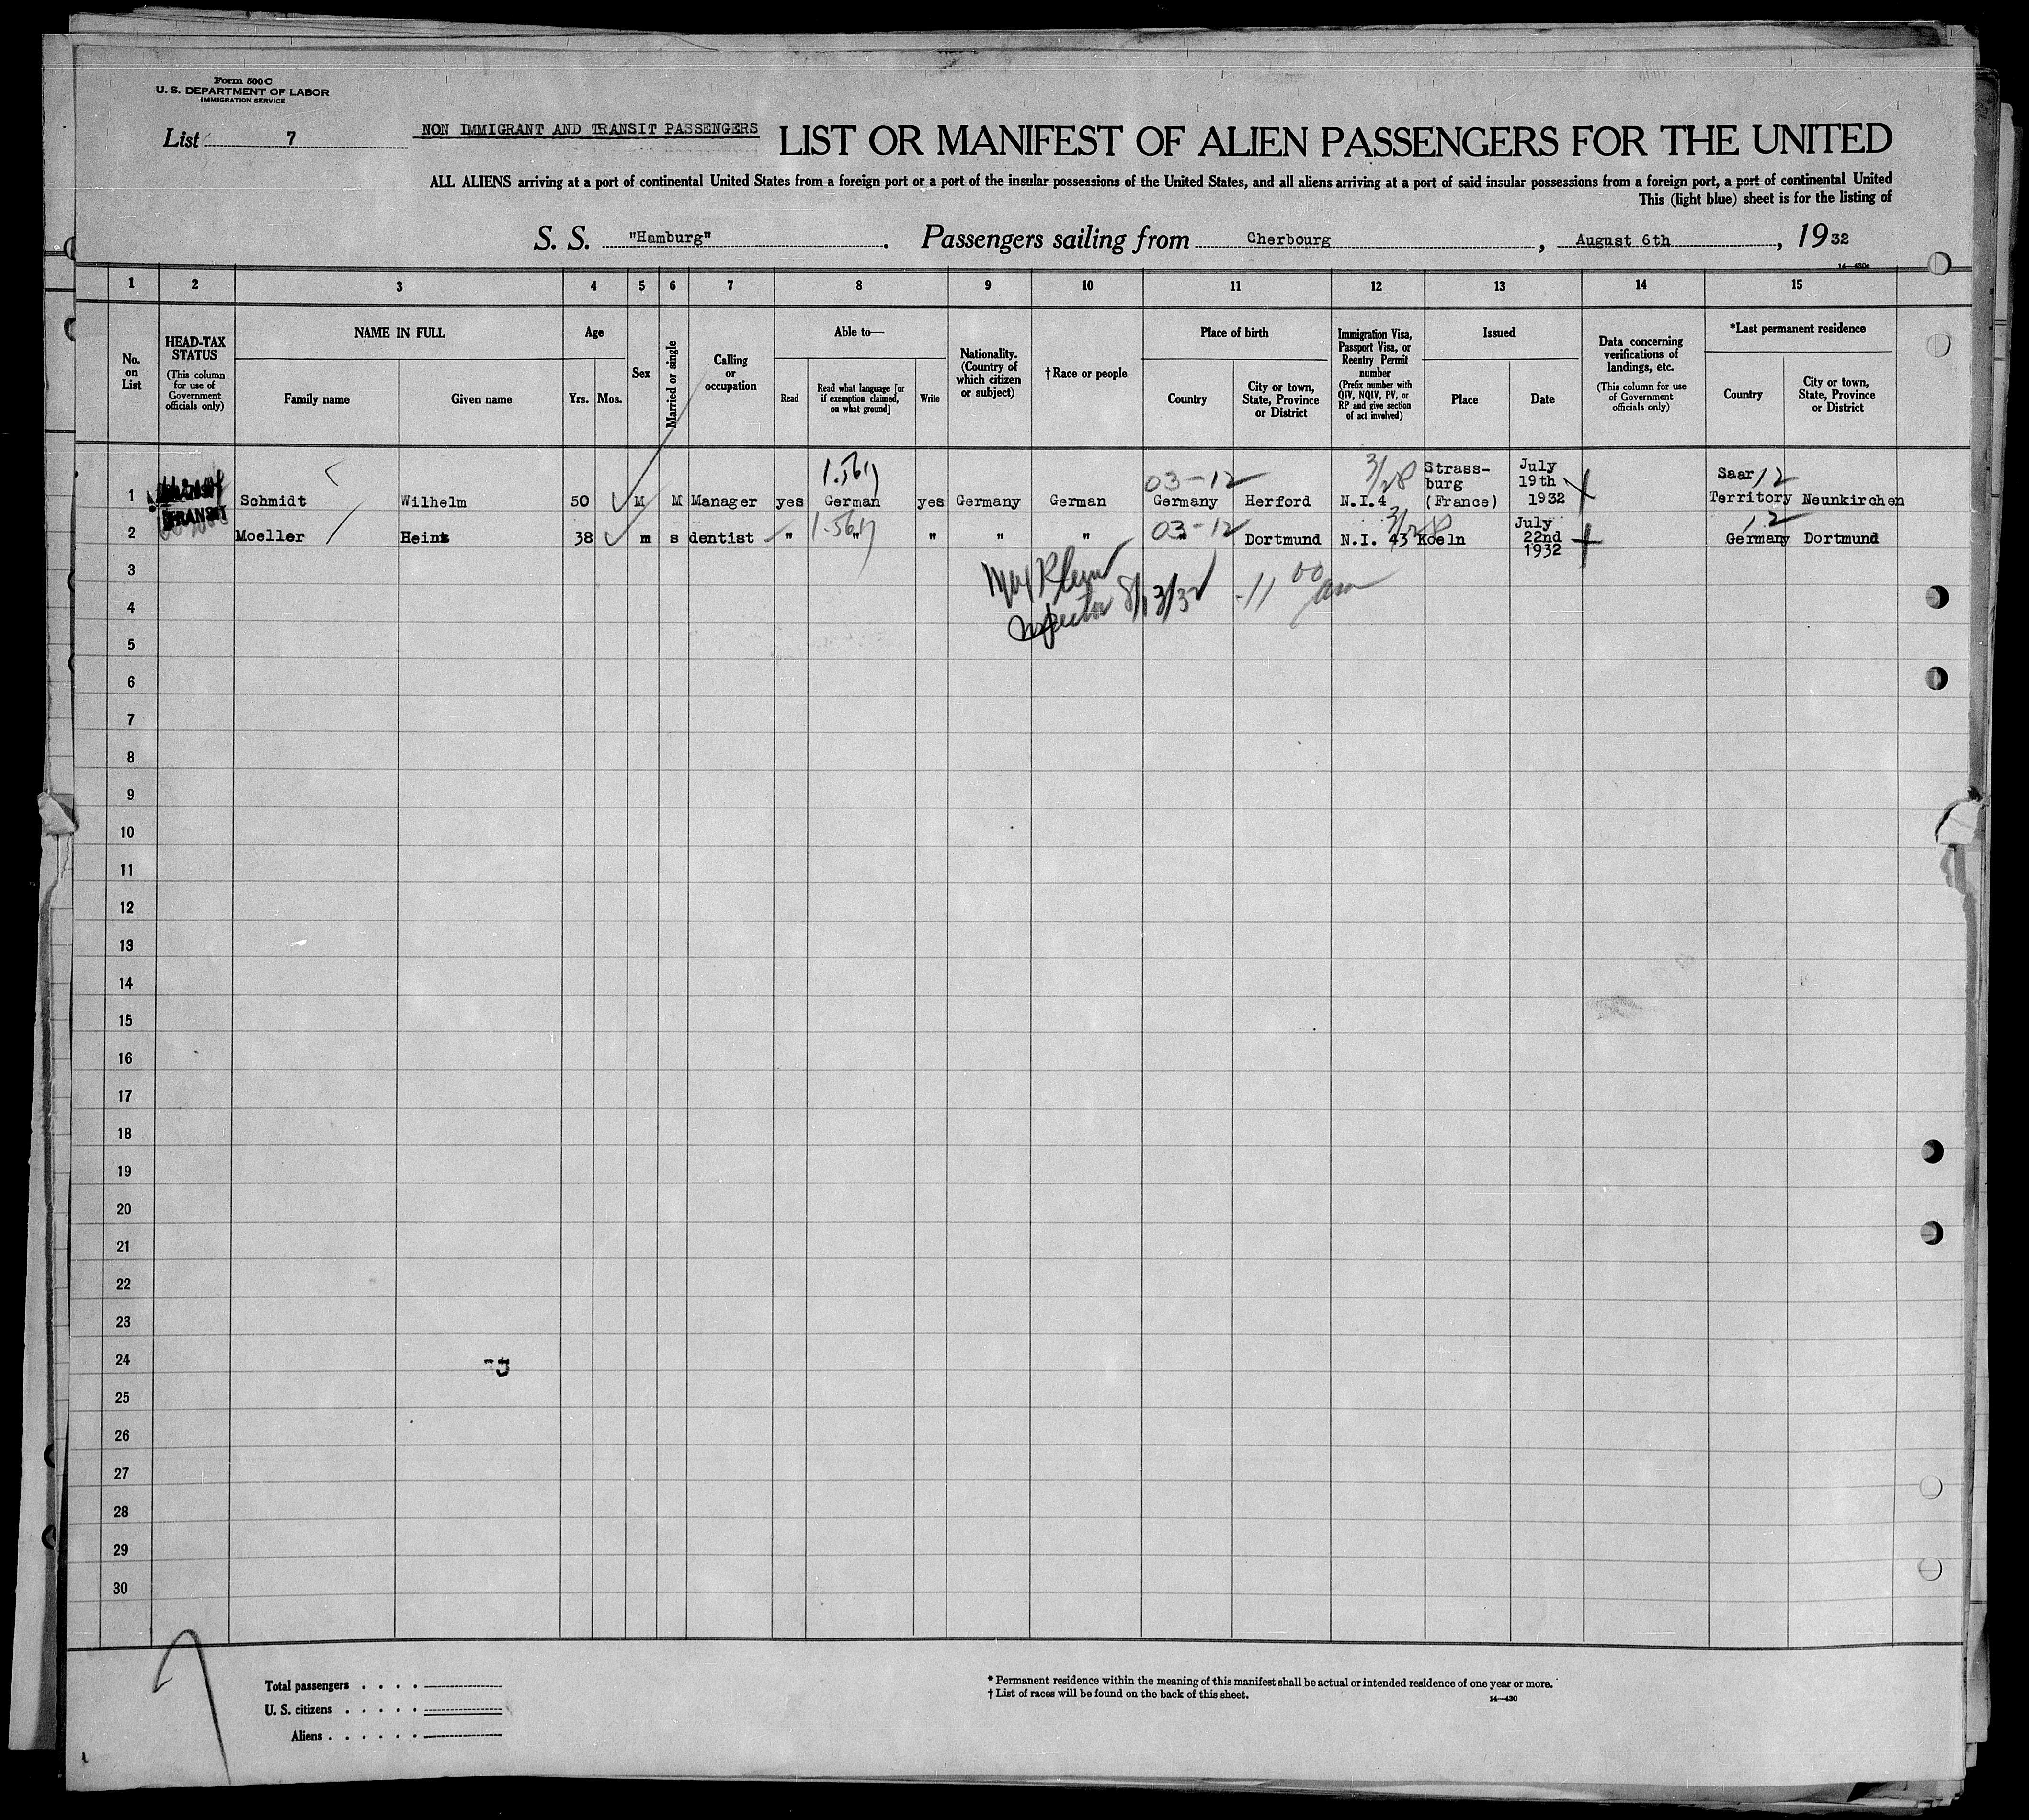 Form 500 C
U. S. DEPARTMENT OF LABOR
IMMIGRATION SERVICE
List 7
NON IMMIGRANT AND TRANSIT PASSENGERS
LIST OR MANIFEST OF ALIEN PASSENGERS FOR THE UNITED
ALL ALIENS arriving at a port of continental United States from a foreign port or a port of the insular possessions of the United States, and all aliens arriving at a port of said insular possessions from a foreign port, a port of continental United
This (light blue) sheet is for the listing of
S. S. "Hamburg". Passengers sailing from Cherbourg, August 6th, 1932
14—430c
1 2 3 4 5 6 7 8 9 10 11 12 13 14 15
No. on List
HEAD-TAX STATUS
(This column for use of Government officials only)
NAME IN FULL
Family name
Given name
Age
Yrs. Mos.
Sex
Married or single
Calling or occupation
Able to—
Read
Read what language [or if exemption claimed, on what ground]
Write
Nationality. (Country of which citizen or subject)
†Race or people
Place of birth
Country
City or town, State, Province or District
Immigration Visa, Passport Visa, or Reentry Permit number
(Prefix number with QIV, NQIV, PV, or RP and give section of act involved)
Issued
Place
Date
Data concerning verifications of landings, etc.
(This column for use of Government officials only)
*Last permanent residence
Country
City or town, State, Province or District
1 TRANSIT Schmidt Wilhelm 50 M M Manager yes German yes Germany German 03-12 Germany Herford 3/28 N.I.4 Strass-burg (France) July 19th 1932 Saar 12 Territory Neunkirchen
2 Moeller Heinz 38 m s dentist " " " " " 03-12 " Dortmund N.I. 43 Koeln July 22nd 1932 12 Germany Dortmund
3
Max Klein
Inspector 8/13/32 - 11 00 am
4
5
6
7
8
9
10
11
12
13
14
15
16
17
18
19
20
21
22
23
24
25
26
27
28
29
30
7
Total passengers
U. S. citizens
Aliens
* Permanent residence within the meaning of this manifest shall be actual or intended residence of one year or more.
† List of races will be found on the back of this sheet.
14—430